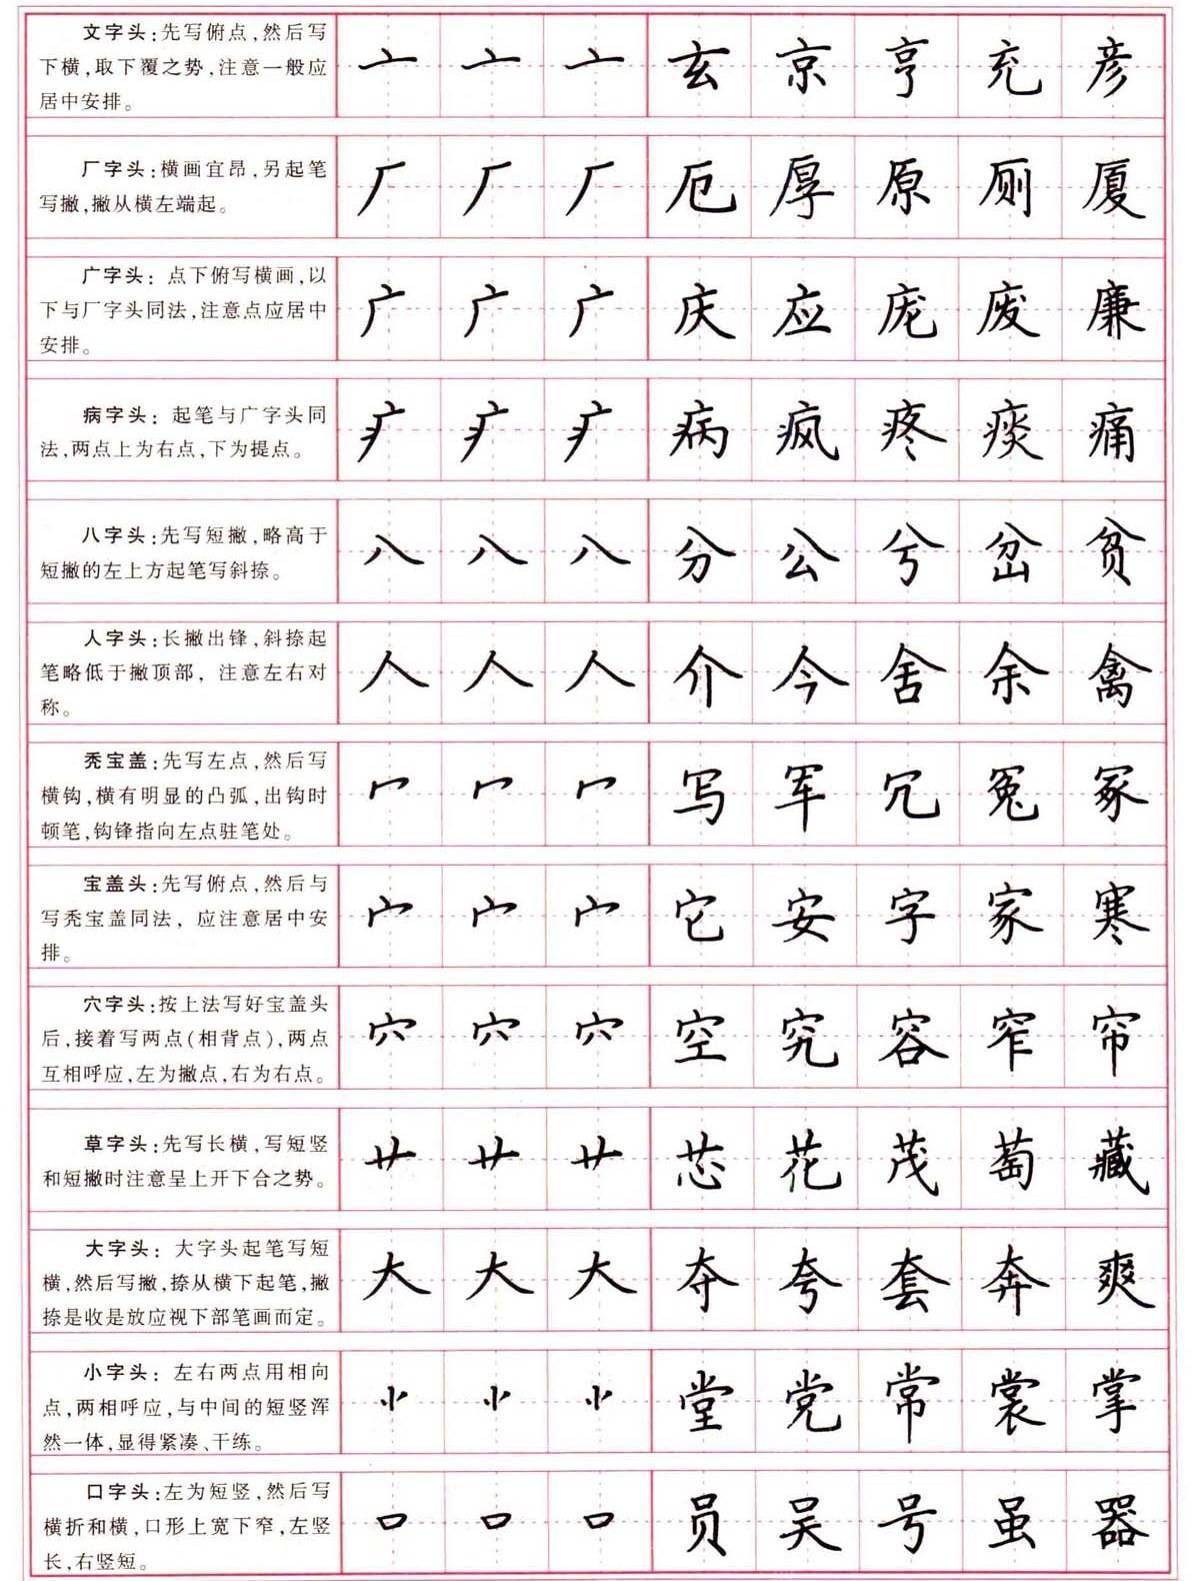 文字头:先写俯点,然后写
下横,取下覆之势,注意一般应
居中安排。
亠 亠 亠 玄 京 亨 充 彦
厂字头:横画宜昂,另起笔
写撇,撇从横左端起。
厂 厂 厂 厄 厚 原 厕 厦
广字头: 点下俯写横画,以
下与厂字头同法,注意点应居中
安排。
广 广 广 庆 应 庞 废 廉
病字头: 起笔与广字头同
法,两点上为右点,下为提点。
疒 疒 疒 病 疯 疼 痰 痛
八字头:先写短撇,略高于
短撇的左上方起笔写斜捺。
八 八 八 分 公 兮 岔 贫
人字头:长撇出锋,斜捺起
笔略低于撇顶部, 注意左右对
称。
人 人 人 介 今 舍 余 禽
秃宝盖:先写左点,然后写
横钩,横有明显的凸弧,出钩时
顿笔,钩锋指向左点驻笔处。
冖 冖 冖 写 军 冗 冤 冢
宝盖头:先写俯点,然后与
写秃宝盖同法, 应注意居中安
排。
宀 宀 宀 它 安 字 家 寒
穴字头:按上法写好宝盖头
后,接着写两点(相背点),两点
互相呼应,左为撇点,右为右点。
穴 穴 穴 空 究 容 窄 帘
草字头:先写长横,写短竖
和短撇时注意呈上开下合之势。
艹 艹 艹 芯 花 茂 萄 藏
大字头: 大字头起笔写短
横,然后写撇,捺从横下起笔,撇
捺是收是放应视下部笔画而定。
大 大 大 夺 夸 套 奔 爽
小字头: 左右两点用相向
点,两相呼应,与中间的短竖浑
然一体,显得紧凑、干练。
⺌ ⺌ ⺌ 堂 党 常 裳 掌
口字头:左为短竖,然后写
横折和横,口形上宽下窄,左竖
长,右竖短。
口 口 口 员 吴 号 虽 器